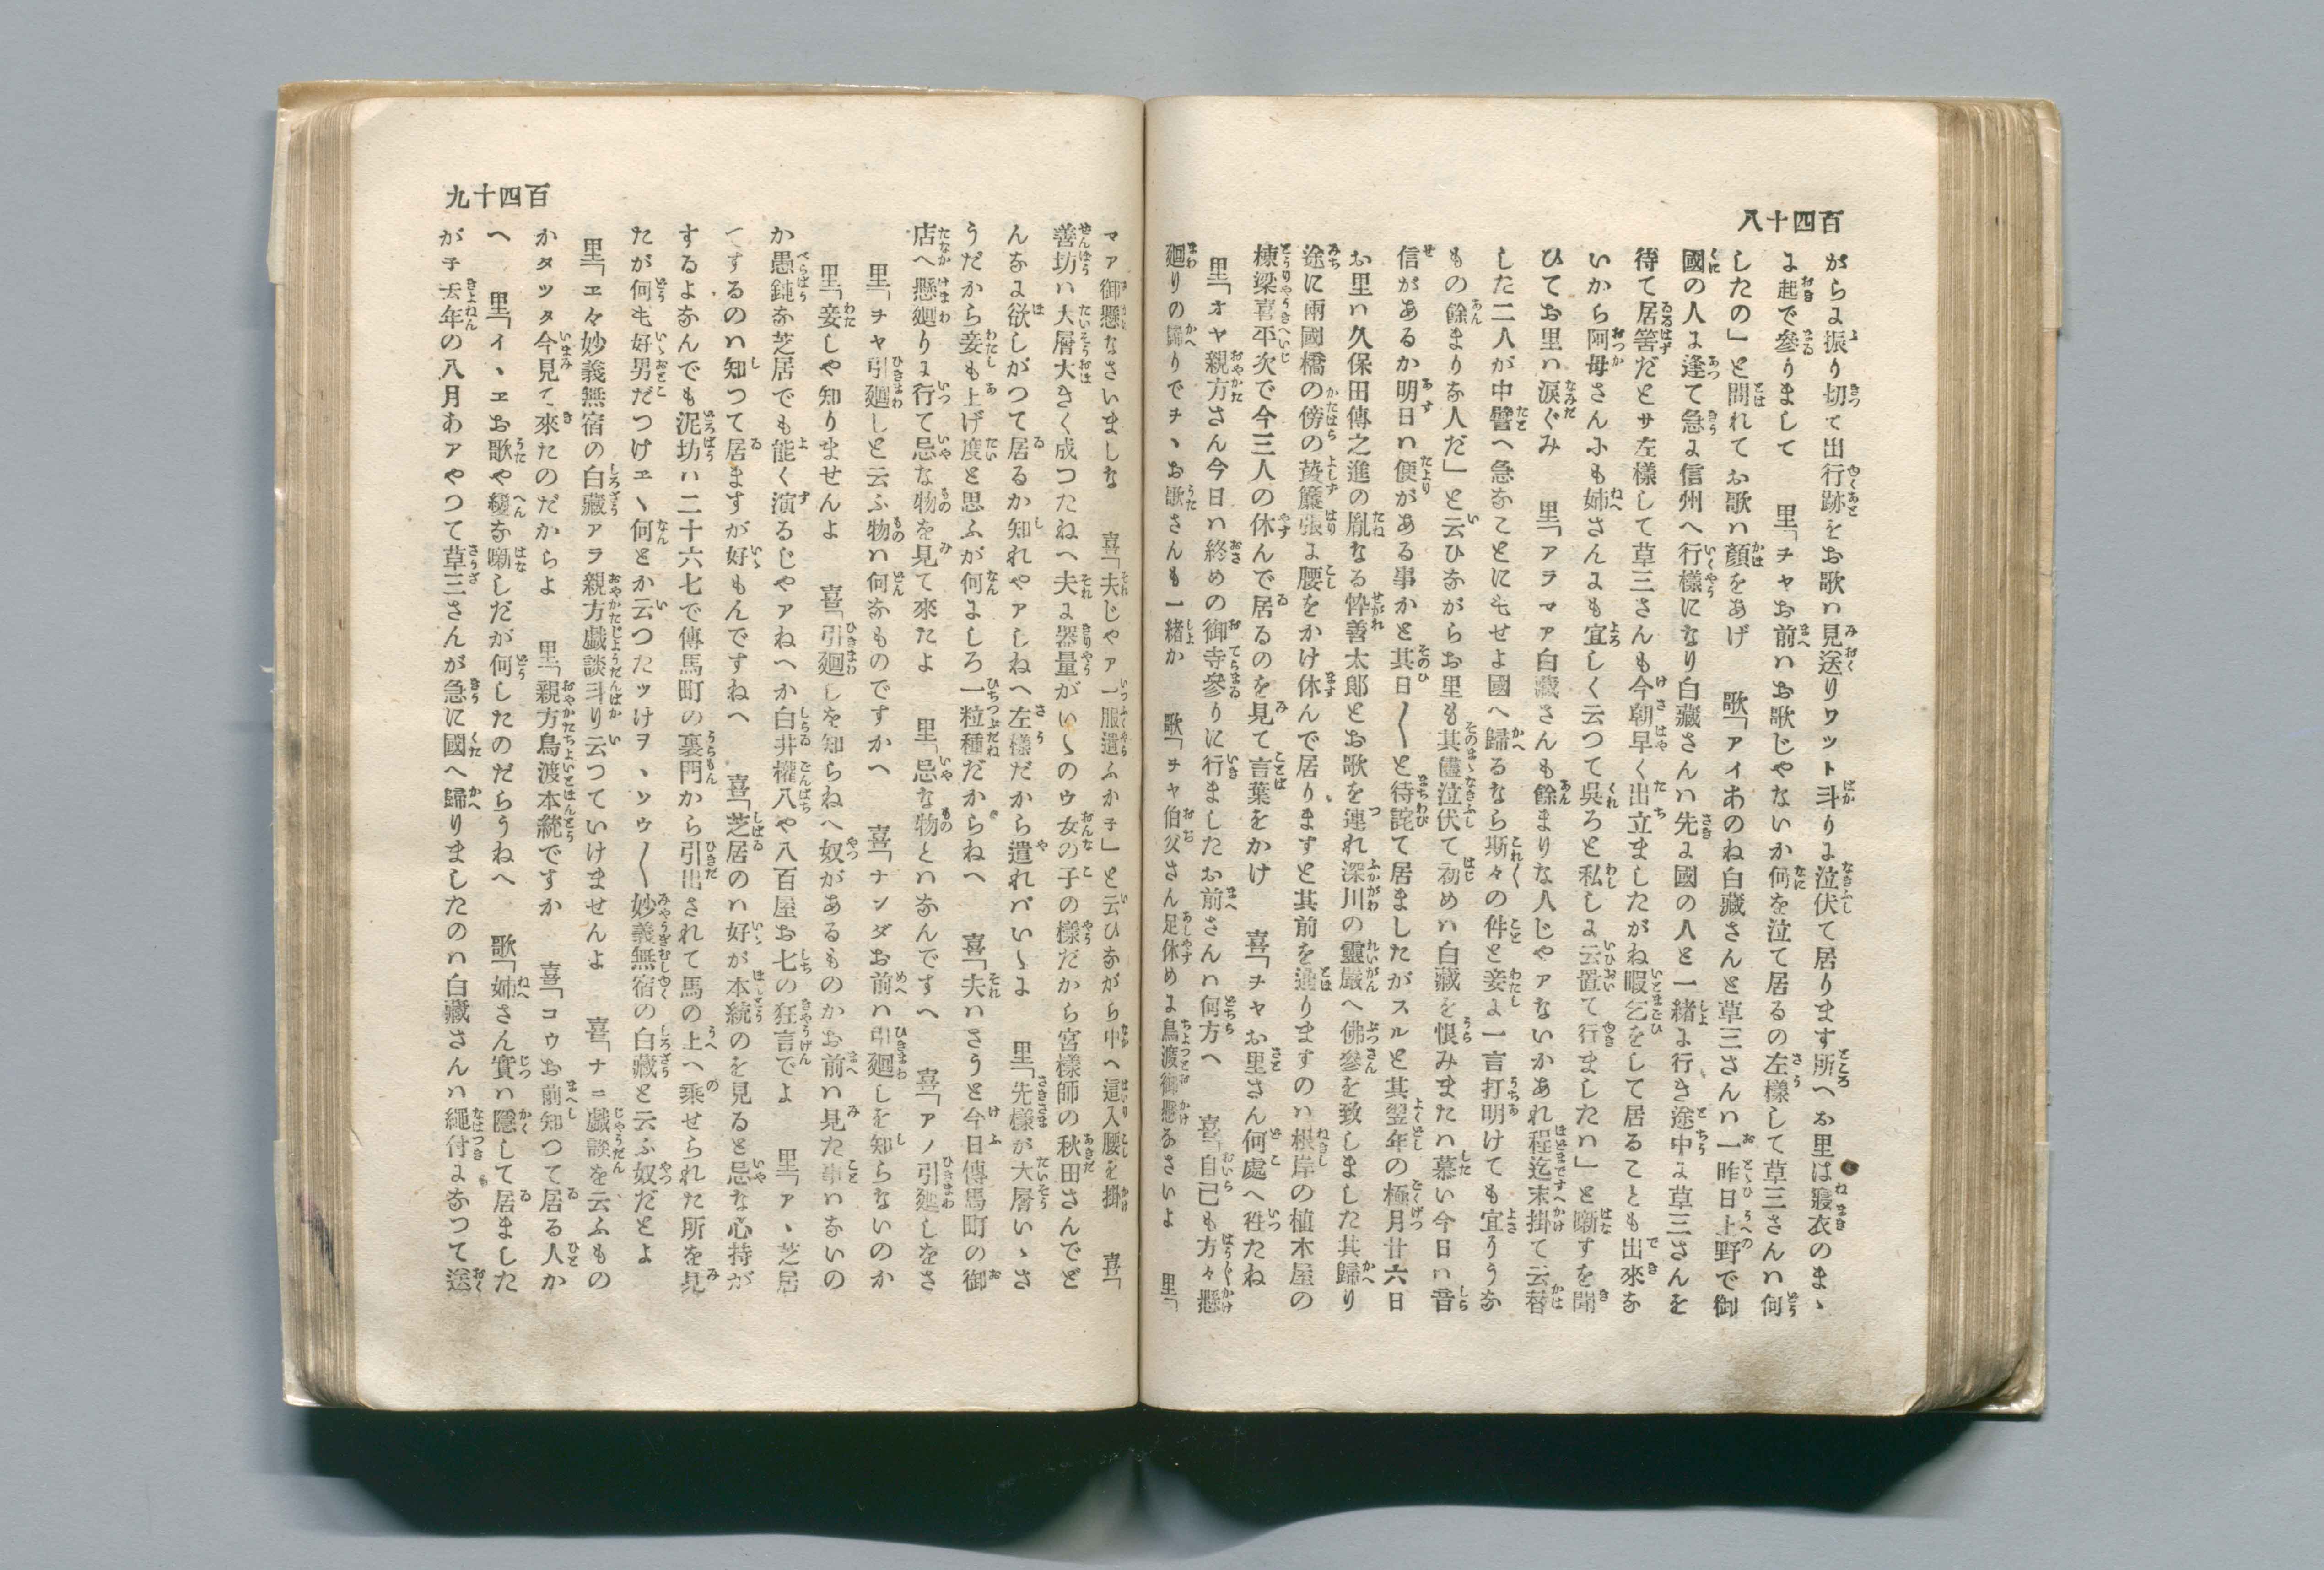 百四十八
がらよ振り切て出行跡をお歌ハ見送りワット斗りよ泣伏て居ります所へお里は寢衣のまゝ
よ起で參りまして　里「ヲヤお前ハお歌じやないか何を泣て居るの左樣して草三さんハ何
したの」と問れてお歌ハ顏をあげ　歌「アイあのね白藏さんと草三さんハ一昨日上野で御
國の人よ逢て急よ信州へ行樣になり白藏さんハ先よ國の人と一緒よ行き途中よ草三さんを
待て居筈だとサ左樣して草三さんも今朝早く出立ましたがね暇乞をして居ることも出來な
いから阿母さんふも姉さんよも宜しく云つて吳ろと私しよ云置て行ましたハ」と噺すを聞
ひてお里ハ淚ぐみ　里「アラマア白藏さんも餘まりな人じやアないかあれ程迄末掛て云替
した二人が中譬へ急なことにもせよ國へ歸るなら斯々の件と妾よ一言打明けても宜うりうな
もの餘まりな人だ」と云ひながらお里も其儘泣伏て初めハ白藏を恨みまたハ慕い今日ハ音
信があるか明日ハ便がある事かと其日〳〵と待詫て居ましたがスルと其翌年の極月廿六日
お里ハ久保田傳之進の胤なる忰善太郞とお歌を連れ深川の靈嚴へ佛參を致しました其歸り
途に兩國橋の傍の葭簾張よ腰をかけ休んで居りますと其前を通りますのハ根岸の植木屋の
棟梁喜平次で今三人の休んで居るのを見て言葉をかけ　喜「ヲヤお里さん何處へ徃たね
里「オヤ親方さん今日ハ終めの御寺參りに行ましたお前さんハ何方へ　喜「自己も方々懸
廻りの歸りでヲヽお歌さんも一緒か　歌「ヲヤ伯父さん足休めよ鳥渡御懸なさいよ　里「
百四十九
マア御懸なさいましな　喜「夫じやア一服遣ふかネ」と云ひながら中へ這入腰を掛　喜「
善坊ハ大層大きく成つたねへ夫よ器量がいゝのウ女の子の樣だから宮樣師の秋田さんでど
んなよ欲しがつて居るか知れやアしねへ左樣だから遣れバいゝよ　里「先樣が大層いゝさ
うだから妾も上げ度と思ふが何よしろ一粒種だからねへ　喜「夫ハさうと今日傳馬町の御
店へ懸廻りよ行て忌な物を見て來たよ　里「忌な物とハなんですへ　喜「アノ引廻しをさ
里「ヲヤ引廻しと云ふ物ハ何なものですかへ　喜「ナンダお前ハ引廻しを知らないのか
里「妾しや知りませんよ　喜「引廻しを知らねへ奴があるものかお前ハ見た事ハないの
か愚鈍な芝居でも能く演るじやアねへか白井權八や八百屋お七の狂言でよ　里「アヽ芝居
でするのハ知つて居ますが好もんですねへ　喜「芝居のハ好が本統のを見ると忌な心持が
するよなんでも泥坊ハ二十六七で傳馬町の裏門から引出されて馬の上へ乘せられた所を見
たが何も好男だつけヱヽ何とか云つたッけヲヽソウ〳〵妙義無宿の白藏と云ふ奴だとよ
里「ヱ々妙義無宿の白藏アラ親方戲談斗り云つていけませんよ　喜「ナニ戲談を云ふもの
かタッタ今見て來たのだからよ　里「親方鳥渡本統ですか　喜「コウお前知つて居る人か
へ　里「イヽヱお歌や變な噺しだが何したのだらうねへ　歌「姉さん實ハ隱して居ました
がネ去年の八月あアやつて草三さんが急に國へ歸りましたのハ白藏さんハ繩付よなつて送